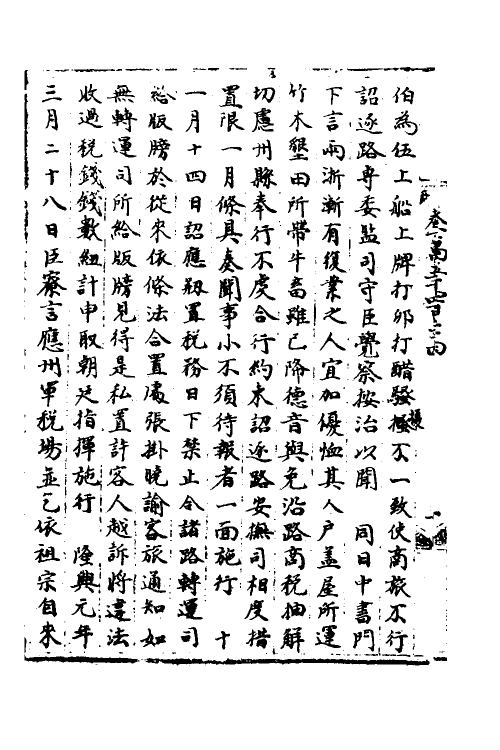 伯為伍上船上牌打卯打醋騷擾不一致使商旅不行
詔逐路専委監司守臣覺察按治以聞　同日中書門
下言兩浙漸有復業之人宜加優恤其人户蓋屋所運
竹木墾田所帶牛畜雖已降德音與免沿路商稅抽解
切慮州縣奉行不䖍合行約束詔逐路安撫司相度措
置限一月條具奏聞事小不須待報者一面施行　十
一月十四日詔應剏置稅務日下禁止令諸路轉運司
給版牓於從來依條法合置處張掛曉諭客旅通知如
無轉運司所給版牓見得是私置許客人越訴將違法
收過稅錢錢數紐計申取朝廷指揮施行　隆興元年
三月二十八日臣寮言應州軍稅場並乞依祖宗自來
卷一萬五千四百二十四